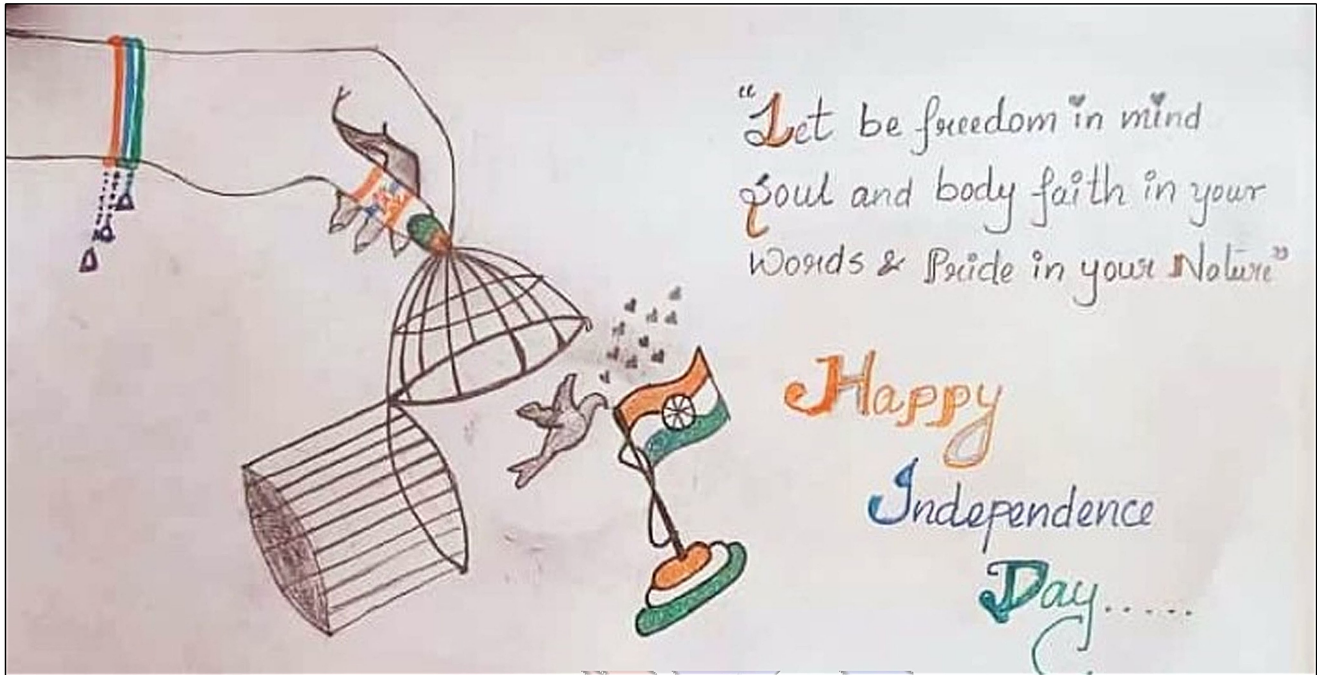 "Let be freedom in mind
Soul and body faith in your
Words & Pride in your Nature"
Happy
Independence
Day......